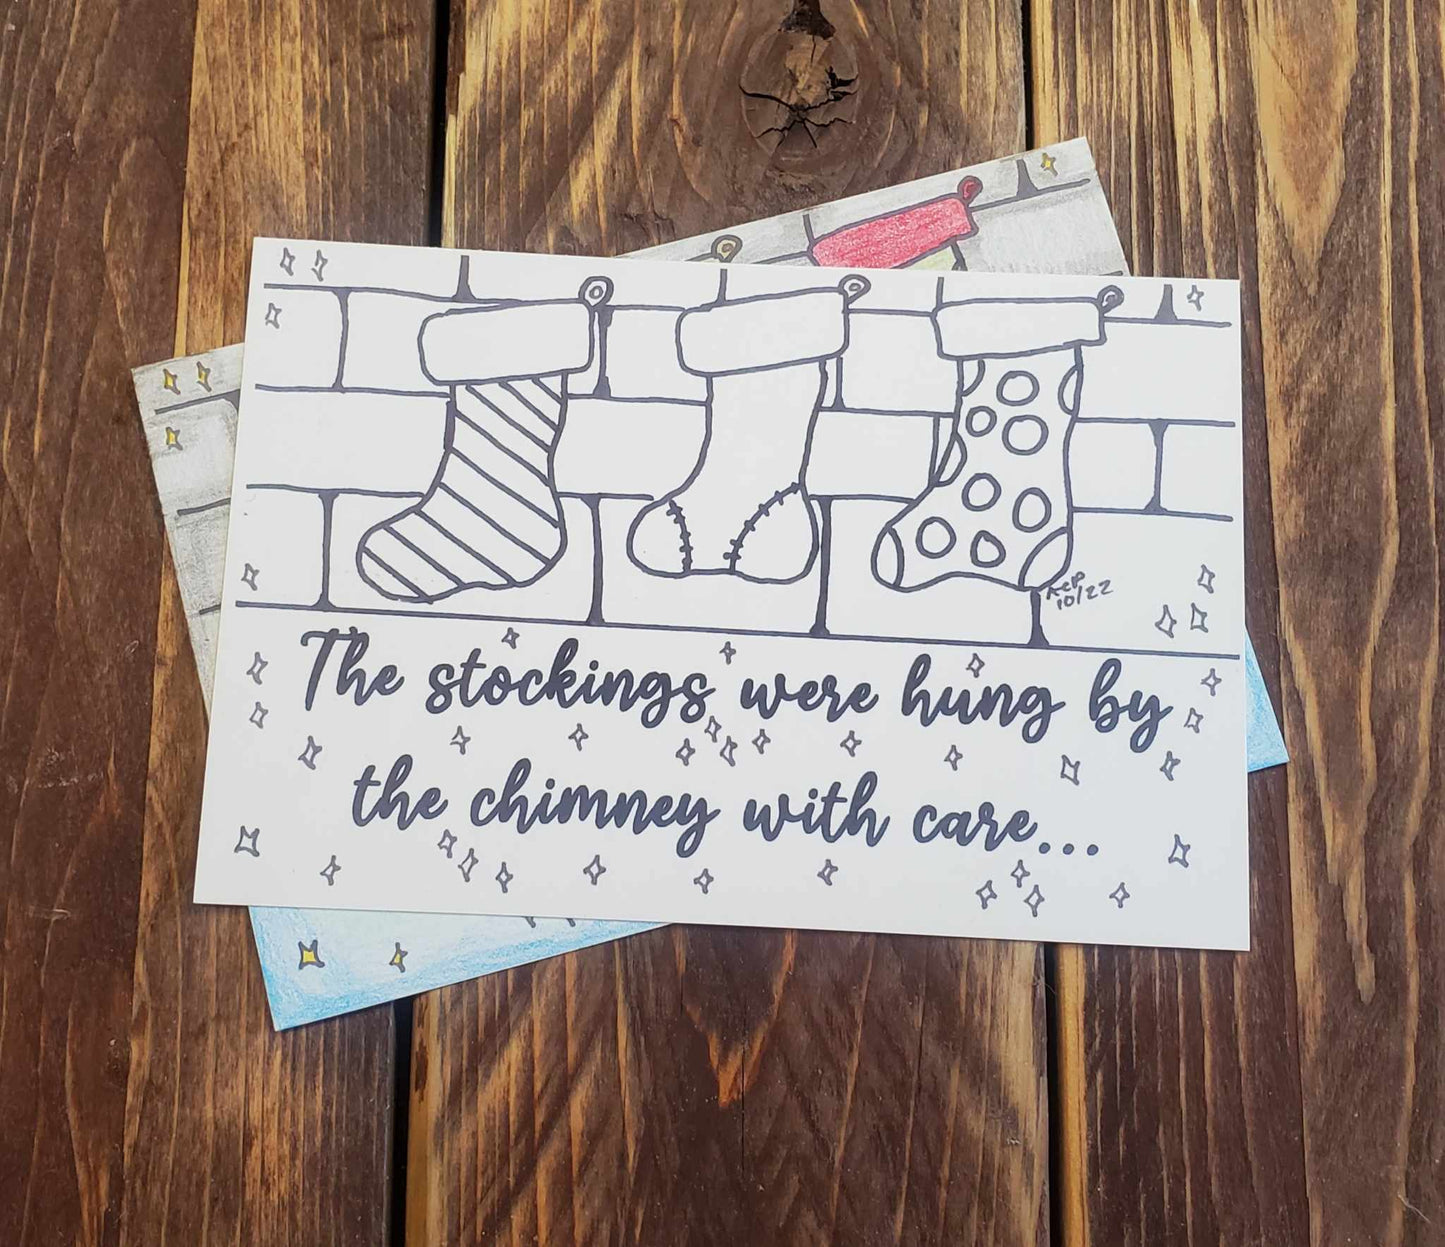 10/22
The stockings were hung by
the chimney with care...